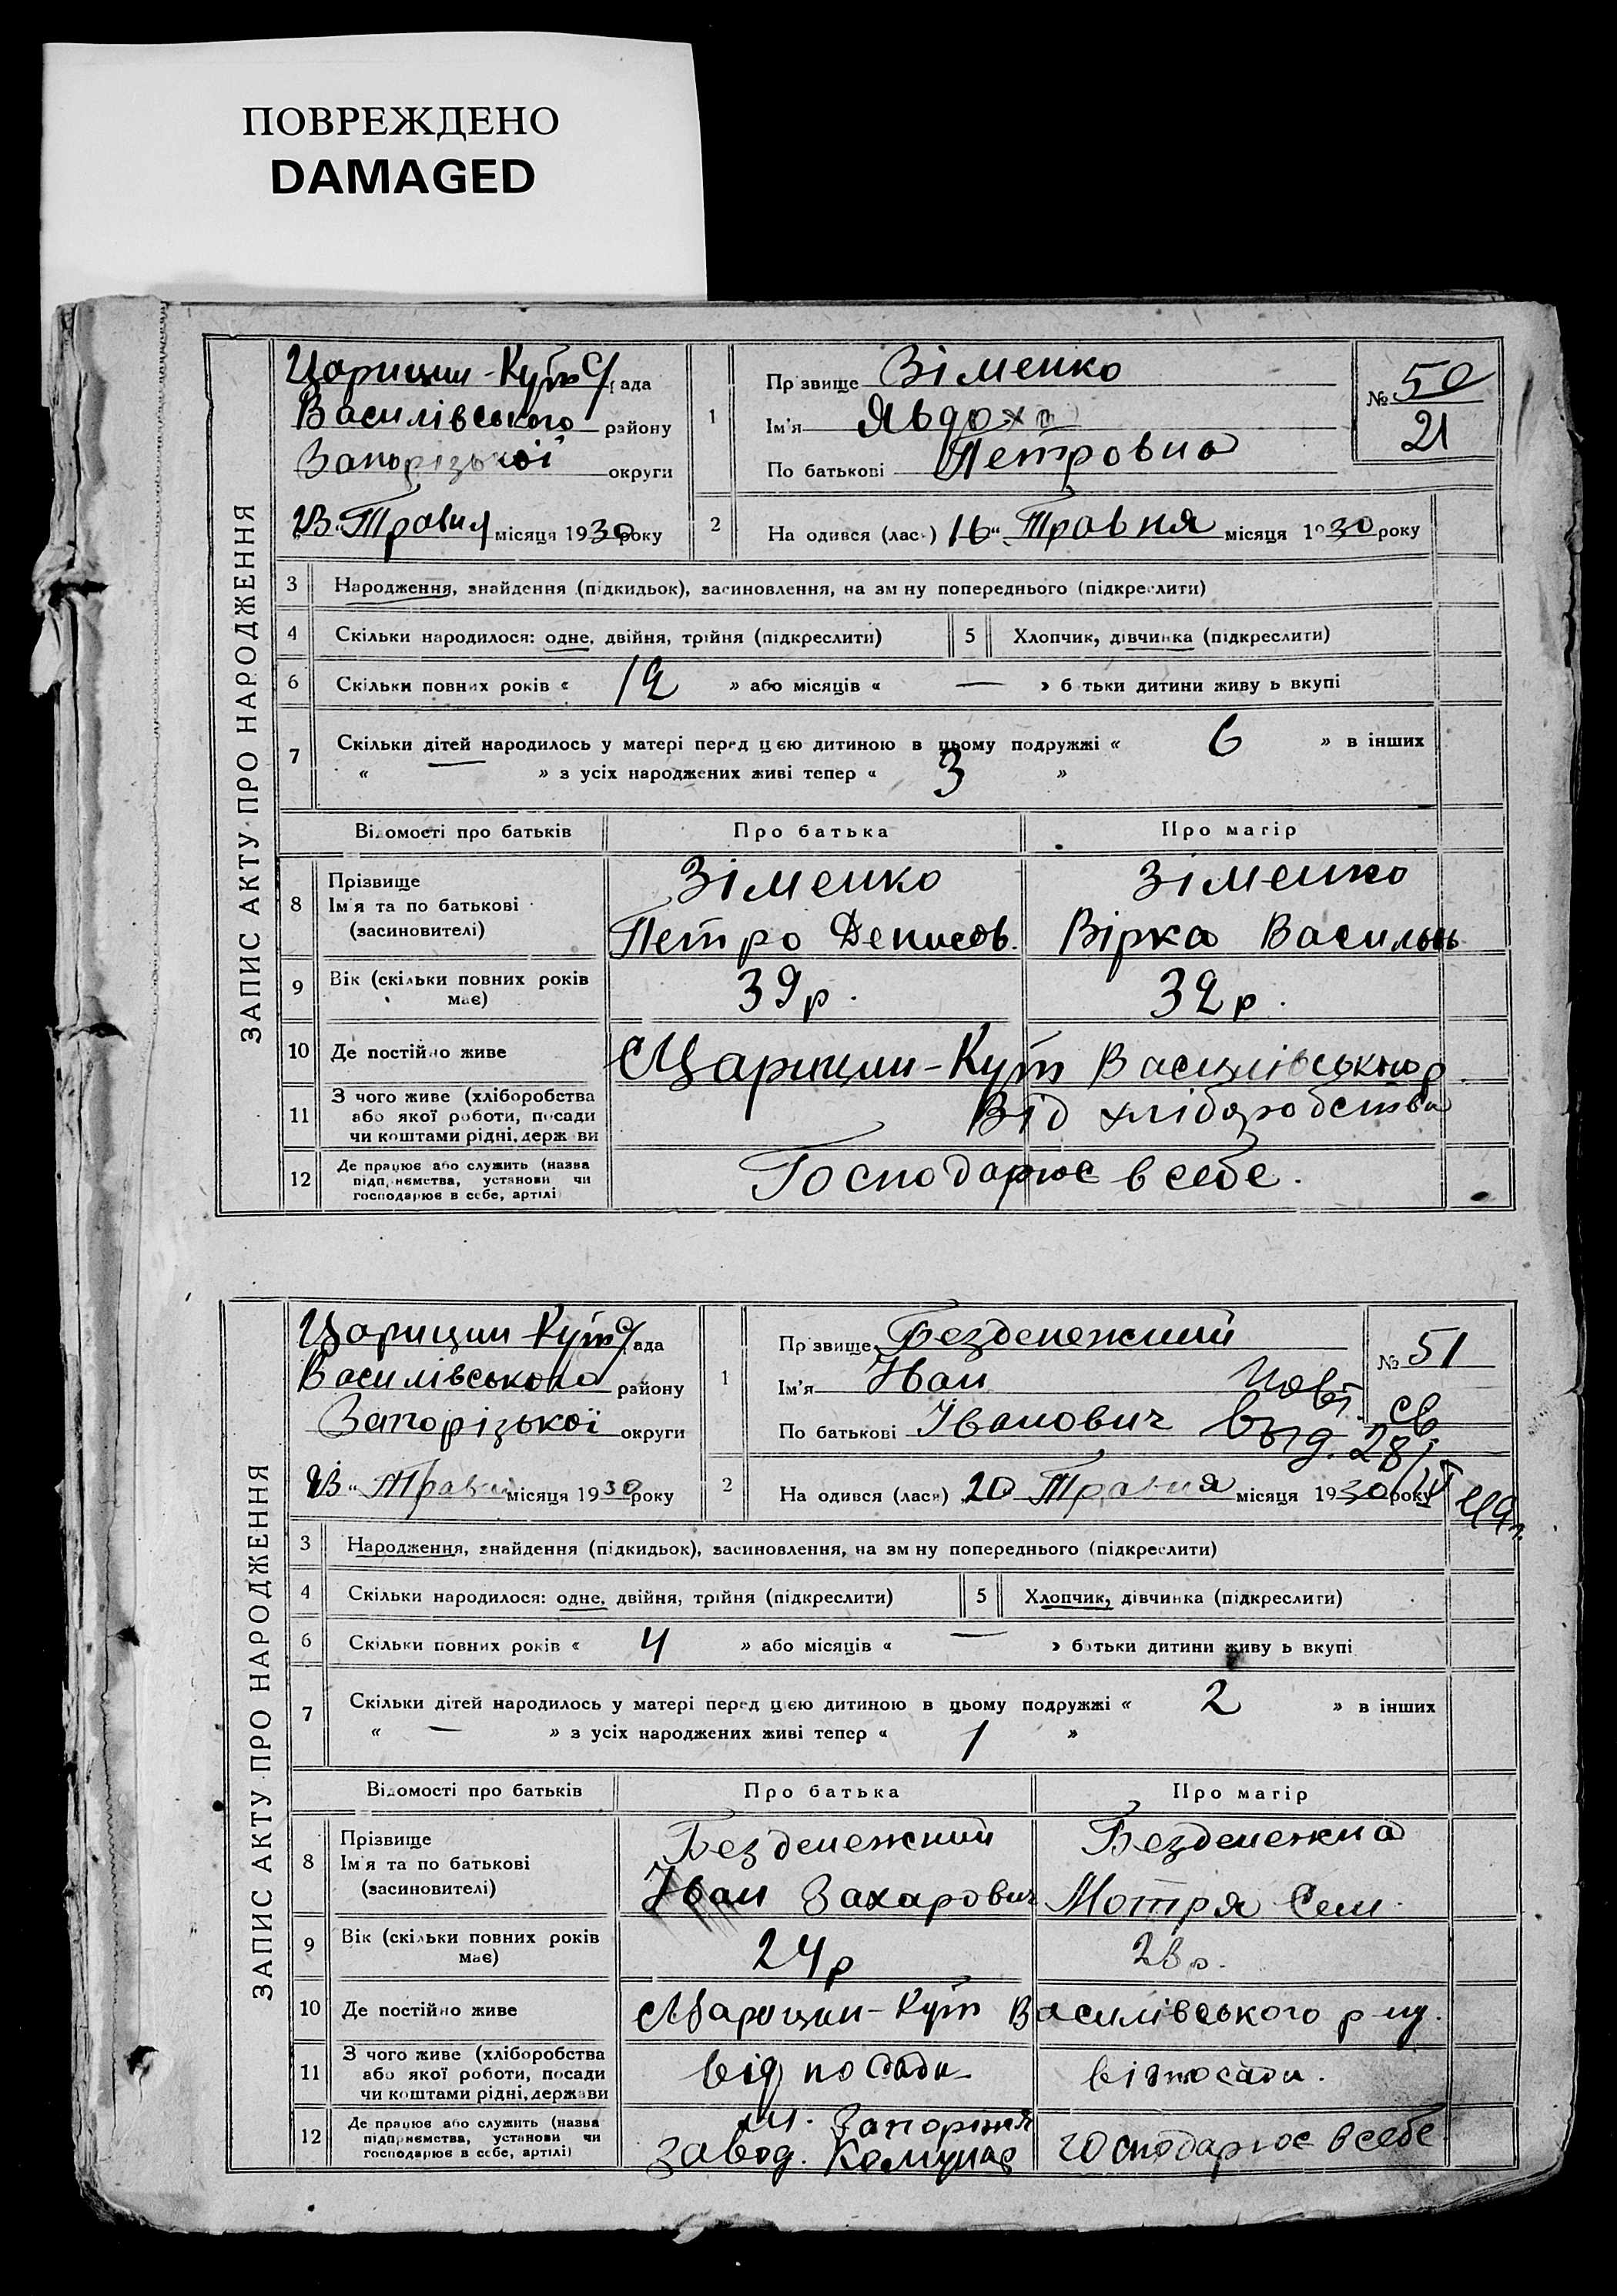 ПОВРЕЖДЕНО
DAMAGED
ЗАПИС АКТУ ПРО НАРОДЖЕННЯ
Царицин-Кут с/рада
Василівського району
Запорізької округи
23 "Травня місяця 1930 року
1
Прізвище Зіменко
Ім'я Явдоха
По батькові Петровна
№ 50
21
2
На одився (лась) 16 "Травня місяця 1930 року
3 Народження, знайдення (підкидьок), засиновлення, на зм ну попереднього (підкреслити)
4 Скільки народилося: одне, двійня, трійня (підкреслити) 5 Хлопчик, дівчинка (підкреслити)
6 Скільки повних років « 12 » або місяців « — » б тьки дитини живу ь вкупі
7 Скільки дітей народилось у матері перед цією дитиною в цьому подружжі « 6 » в інших
« — » з усіх народжених живі тепер « 3 »
Відомості про батьків Про батька Про матір
8 Прізвище
Ім'я та по батькові
(засиновителі)
Зіменко
Петро Денисов.
Зіменко
Вірка Василь
9 Вік (скільки повних років
має)
39 р. 32 р.
10 Де постійно живе Царицин-Кут Василівського р.
11 З чого живе (хліборобства
або якої роботи, посади
чи коштами рідні, держави
Від хліборобства
12 Де працює або служить (назва
підприємства, установи чи
господарює в себе, артілі)
Господарює в себе.
ЗАПИС АКТУ ПРО НАРОДЖЕННЯ
Царицин Кут с/рада
Василівського району
Запорізької округи
23 " Травня місяця 1930 року
1
Пр звище Безденежний
Ім'я Іван
По батькові Іванович
№ 51
св
выд. 28/
2
На одився (лася) 20 Травня місяця 1930 року
49 г.
3 Народження, знайдення (підкидьок), засиновлення, на зм ну попереднього (підкреслити)
4 Скільки народилося: одне, двійня, трійня (підкреслити) 5 Хлопчик, дівчинка (підкреслити)
6 Скільки повних років « 4 » або місяців « — » батьки дитини живу ь вкупі
7 Скільки дітей народилось у матері перед цією дитиною в цьому подружжі « 2 » в інших
« — » з усіх народжених живі тепер « 1 »
Відомості про батьків Про батька Про матір
8 Прізвище
Ім'я та по батькові
(засиновителі)
Безденежний
Іван Захарович
Безденежна
Мотря Сем.
9 Вік (скільки повних років
має)
24 р 23 р.
10 Де постійно живе Царицин-Кут Василівського р-ну.
11 З чого живе (хліборобства
або якої роботи, посади
чи коштами рідні, держави
від посади від посади.
12 Де працює або служить (назва
підприємства, установи чи
господарює в себе, артілі)
м. Запоріжя
завод. Комунар
господарює в себе.